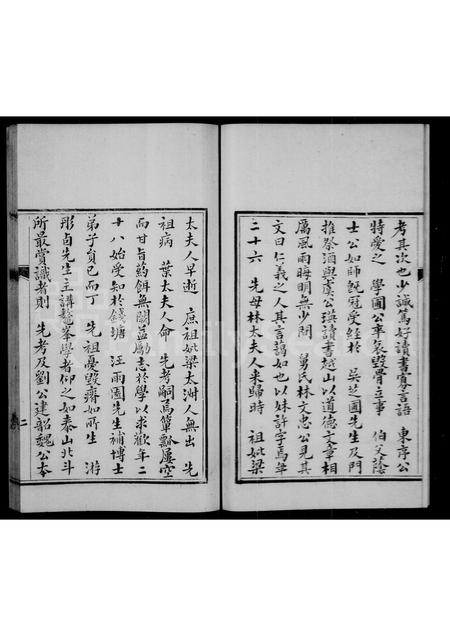 考其次也少誠篤好讀書寡言語　東序公
特愛之　學圃公卒哀毀骨立事　伯父蔭
士公如師既冠受經於　吳芝圃先生及門
推祭酒與虞公瑛讀書越山以道德文章相
厲風雨晦明無少間　舅氏林文忠公見其
文曰仁義之人其言藹如也以妹許字焉年
二十六　先母林太夫人來歸時　祖妣梁
太夫人早逝　庶祖妣梁太淑人無出　先
祖病　葉太夫人命　先考嗣焉簞瓢屢空
而甘旨葯餌無闕益勵志於學以求歡年二
十八始受知於錢塘　汪雨園先生補博士
弟子員已而丁　先祖憂毀瘠如所生　游
彤卣先生主講鼇峯學者仰之如泰山北斗
所最賞識者則　先考及劉公建韶魏公本
二